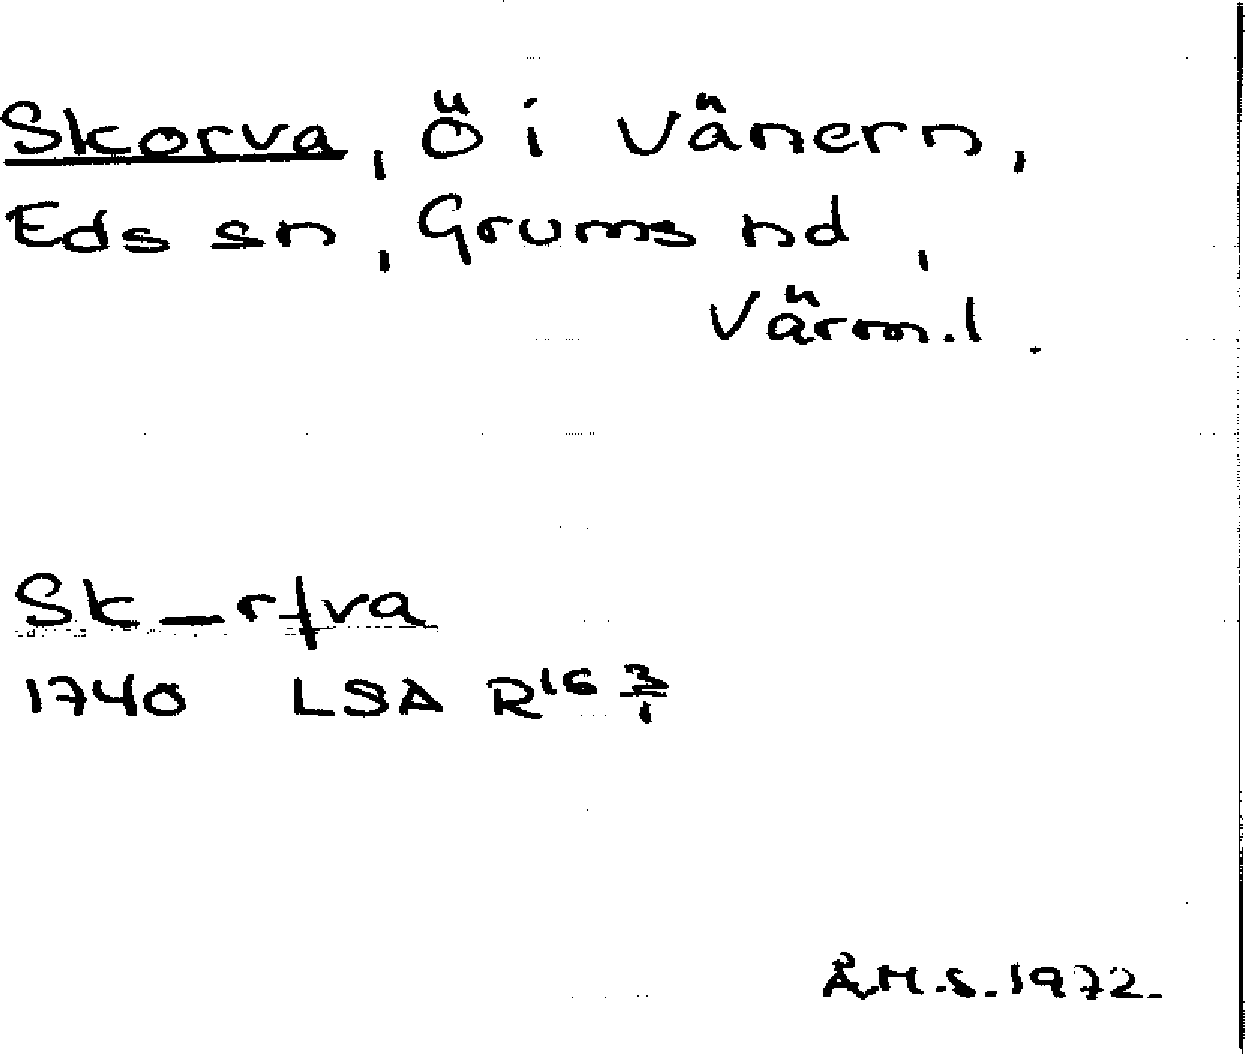 Skorva, Ö i Vänern,
Eds sn, Grums hd,
Värml.
Sk_rfva
1740 LSA R16 3/1
Å.H.S. 1972